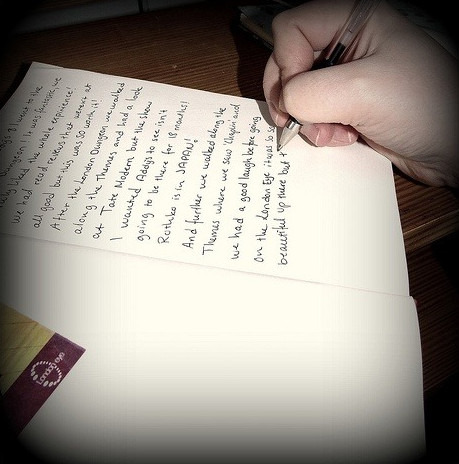 I went to the
Dungeon! It was brilliant, we
liked the whole experience!
we had read reviews that weren't at
all good but this was so worth it!
After the London Dungeon we walked
along the Themes and had a look
at Tate Modern but the show
I wanted Addy's to see isn't
going to be there for 18 months!
Rothko is in JAPAN!
And further we walked along the
Themes where we saw 'Chaplin' and
we had a good laugh before going
on the London Eye it was so
beautiful up there but
london eye